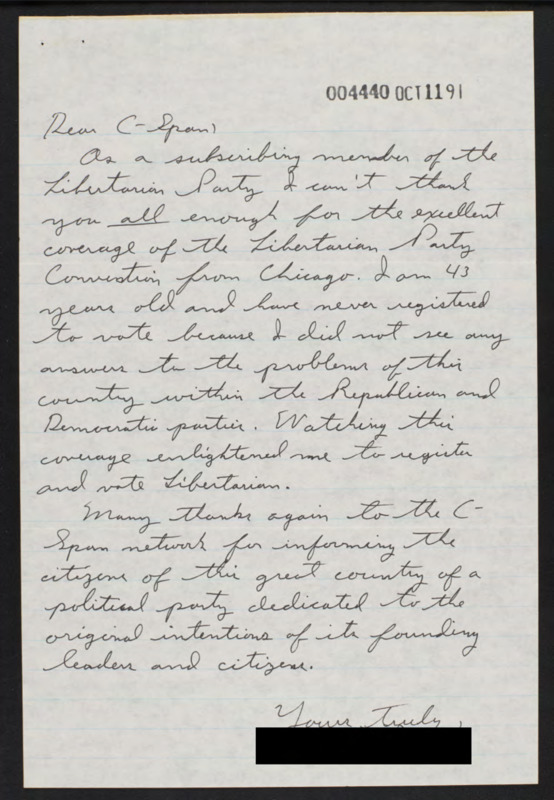 004440 OCT 11 91
Dear C-Span,
As a subscribing member of the
Libertarian Party I can't thank
you all enough for the excellent
coverage of the Libertarian Party
Convention from Chicago. I am 43
years old and have never registered
to vote because I did not see any
answers to the problems of this
country within the Republican and
Democratic parties. Watching this
coverage enlightened me to register
and vote Libertarian.
Many thanks again to the C-
Span network for informing the
citizens of this great country of a
political party dedicated to the
original intentions of its founding
leaders and citizens.
Yours Truly,